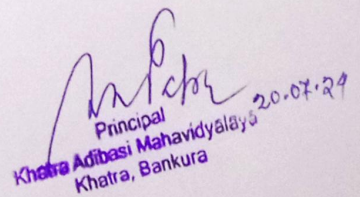 20.07.24
Principal
Khatra Adibasi Mahavidyālaya
Khatra, Bankura